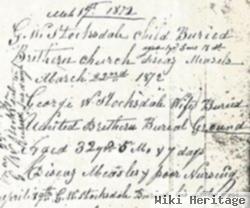 Mch 19th 1872
G. W. Stocksdale Child Buried
Brithern Church Diseas Measels
March 22nd 1872
George W Stocksdale Wife Buried
United Brithern Burial Ground
Aged 32 yrs 5 Mo & 7 days
Diseas Measley & poor Nursing
April 19th G. W. Stocksdale
Wiki Heritage